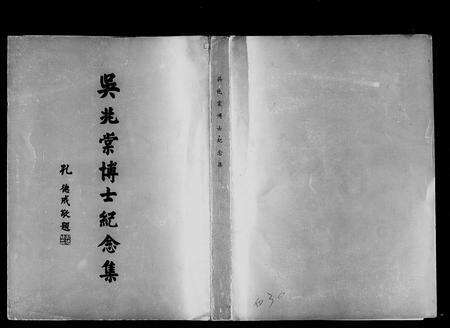 吳兆棠博士紀念集
孔德成敬題
吳兆棠博士紀念集